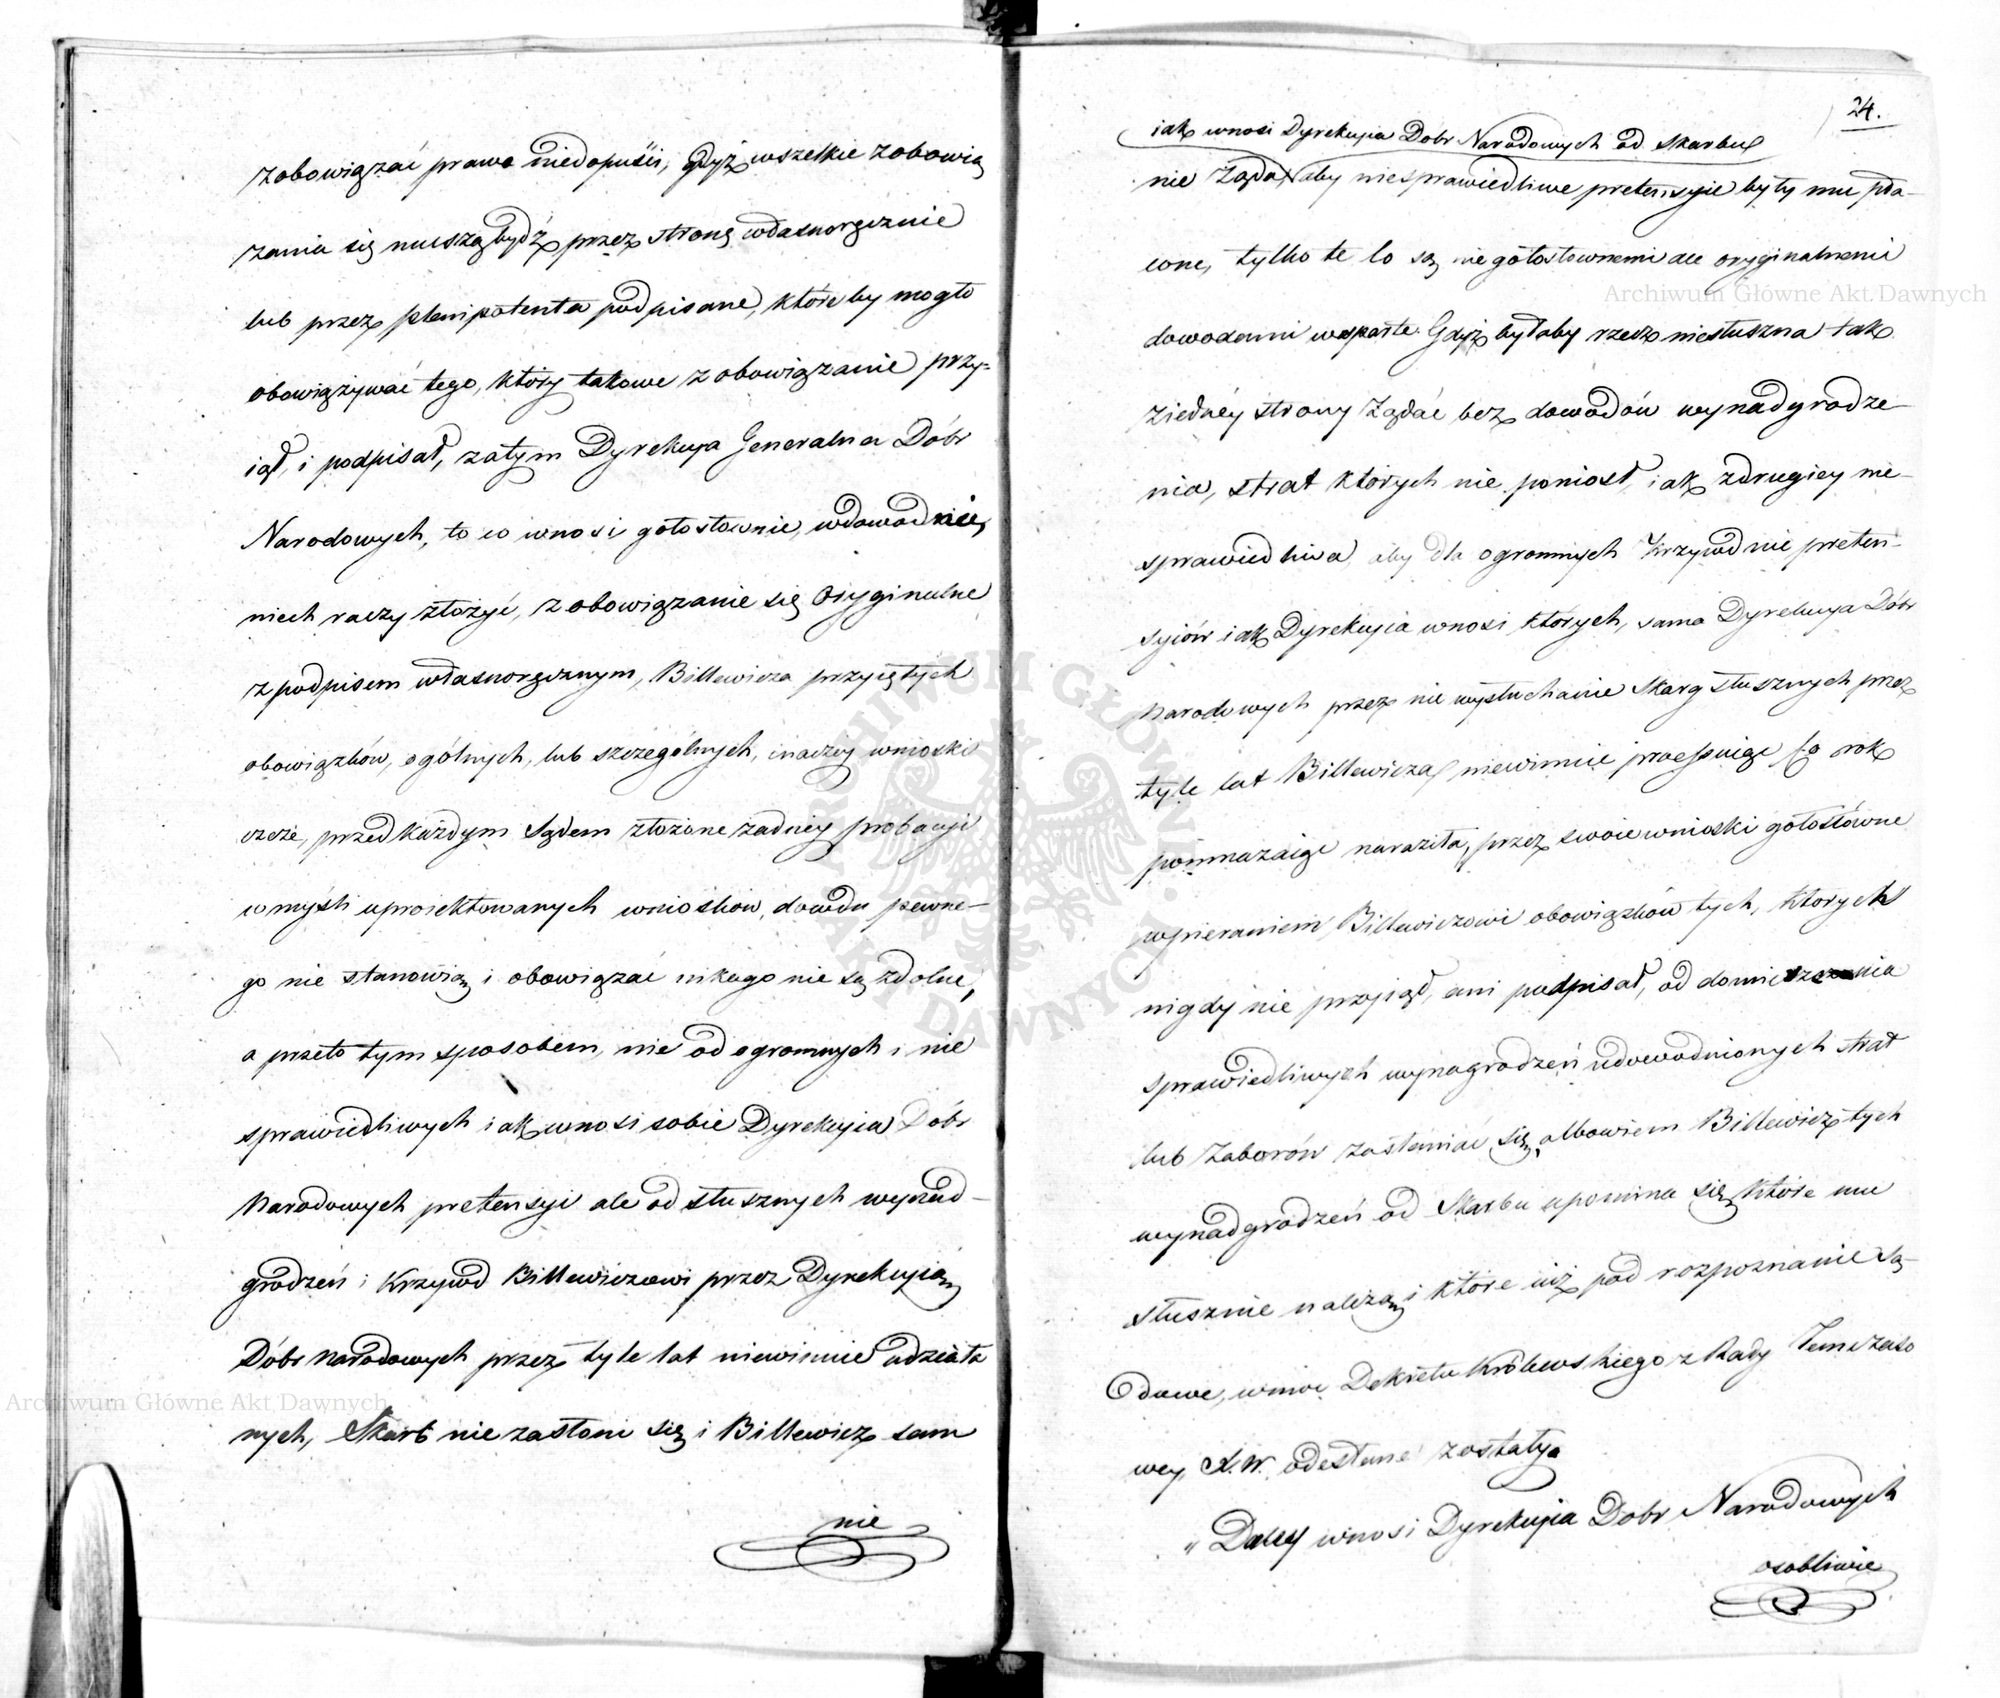 zobowiązać prawo niedopuści, gdyż wszelkie zobowią
zania się muszą bydź przez stronę własnoręcznie
lub przez plenipotenta podpisane, które by mogło
obowiązywać tego, który takowe zobowiązanie przy=
iął, i podpisał, zatym Dyrekcya Generalna Dóbr
Narodowych, to co wnosi gołosłownie, udowodnić,
niech raczy złożyć, zobowiązanie się Oryginalne
z podpisem własnoręcznym, Billewicza przyiętych
obowiązków, ogólnych, lub szczególnych, inaczey wnioski
czcze, przed każdym Sądem złożone żadney probacyi
w myśli uproiektowanych wniosków, dowodu pewne-
go nie stanowią i obowiązać nikogo nie są zdolne,
a przeto tym sposobem, nie od ogromnych i nie
sprawiedliwych iak wnosi sobie Dyrekcyia Dóbr
Narodowych pretensyi ale od słusznych wynad-
grodzeń i Krzywd Billewiczowi przez Dyrekcyią
Dóbr Narodowych przez tyle lat niewinnie udziała
nych, Skarb nie zasłoni się i Billewicz sam
nie
24.
iak wnosi Dyrekcyia Dóbr Narodowych od Skarbu
nie żąda, aby niesprawiedliwe pretensyie były mu pła-
cone, tylko te co są nie gołosłownemi ale oryginalnemi
dowodami wsparte. Gdyż byłaby rzecz niesłuszna tak
ziedney strony żądać bez dowodów wynadgrodze-
nia, strat których nie poniosł, iak zdrugiey nie-
sprawiedliwa, aby dla ogromnych Krzywd nie preten-
syiów iak Dyrekcyia wnosi których, sama Dyrekcya Dóbr
Narodowych przez nie wysłuchanie Skarg słusznych przez
tyle lat Billewicza niewinnie co rok
pomnażaiąc naraziła, przez swoie wnioski gołosłowne
wpieraniem Billewiczowi obowiązków tych, których
nigdy nie przyiął, ani podpisał, od
sprawiedliwych wynagrodzeń udowodnionych strat
lub Zaborów zasłaniać się, albowiem Billewicz tych
wynadgrodzeń od Skarbu upomina się które mu
słusznie należą i które iuż pod rozpoznanie Są-
dowe, wmoc Dekretu Królewskiego z Rady Temczaso
wey X. W. odesłane zostały.
„ Daley wnosi Dyrekcyia Dobr Narodowych
osobliwie
Archiwum Główne Akt Dawnych
Archiwum Główne Akt Dawnych
ARCHIWUM GŁÓWNE AKT DAWNYCH